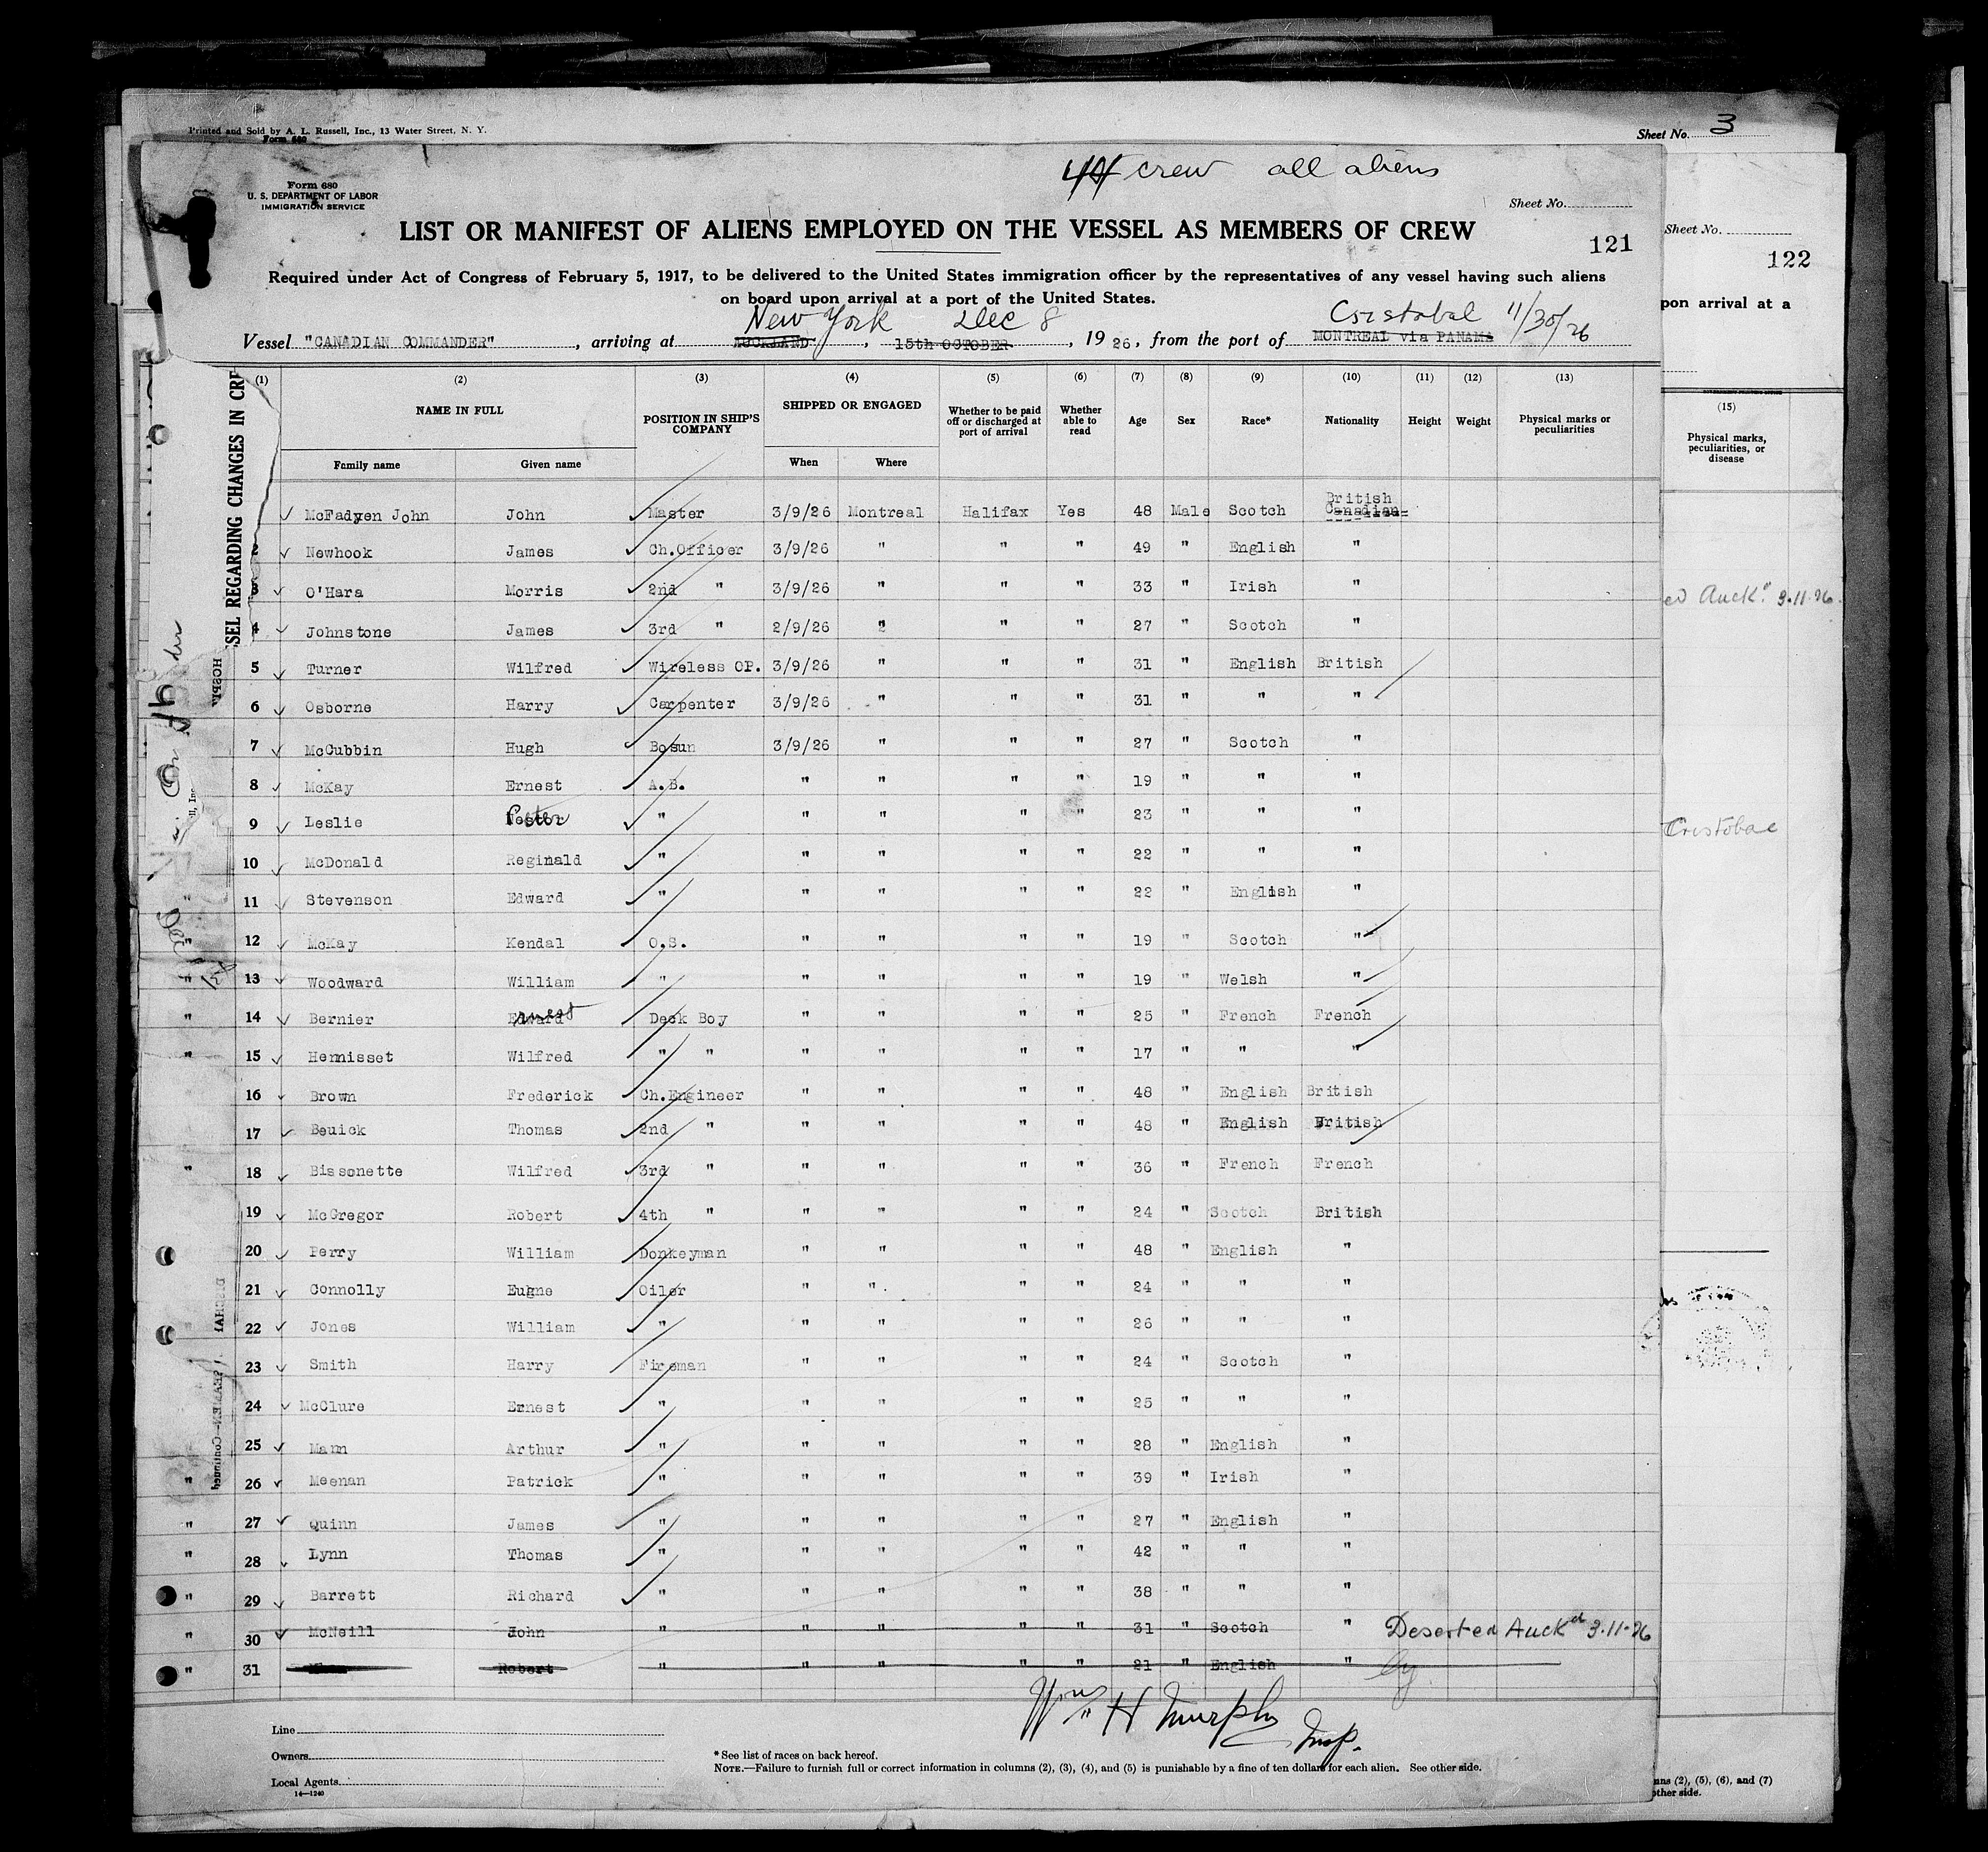 Printed and Sold by A. L. Russell, Inc., 13 Water Street, N. Y.
Form 680
Sheet No. 3
44 crew all aliens
Form 680
U. S. DEPARTMENT OF LABOR
IMMIGRATION SERVICE
Sheet No.
LIST OR MANIFEST OF ALIENS EMPLOYED ON THE VESSEL AS MEMBERS OF CREW
121
Sheet No.
122
Required under Act of Congress of February 5, 1917, to be delivered to the United States immigration officer by the representatives of any vessel having such aliens
on board upon arrival at a port of the United States.
pon arrival at a
New York Dec 8 Cristobal 11/30/26
Vessel "CANADIAN COMMANDER", arriving at AUCKLAND, 15th OCTOBER, 1926, from the port of MONTREAL via PANAMA
SSEL REGARDING CHANGES IN CRE
(1) (2) (3) (4) (5) (6) (7) (8) (9) (10) (11) (12) (13)
NAME IN FULL
Family name Given name
POSITION IN SHIP'S COMPANY
SHIPPED OR ENGAGED
When Where
Whether to be paid off or discharged at port of arrival
Whether able to read
Age Sex Race* Nationality Height Weight
Physical marks or peculiarities
(15)
Physical marks, peculiarities, or disease
McFadyen John John Master 3/9/26 Montreal Halifax Yes 48 Male Scotch British Canadian
2 Newhook James Ch.Officer 3/9/26 " " " 49 " English "
3 O'Hara Morris 2nd " 3/9/26 " " " 33 " Irish "
ed Auck. 3.11.26.
4 Johnstone James 3rd " 2/9/26 " " " 27 " Scotch "
5 Turner Wilfred Wireless OP. 3/9/26 " " " 31 " English British
6 Osborne Harry Carpenter 3/9/26 " " " 31 " " "
7 McCubbin Hugh Bosun 3/9/26 " " " 27 " Scotch "
8 McKay Ernest A.B. " " " " 19 " " "
9 Leslie Peter " " " " " 23 " " "
Cristobal
10 McDonald Reginald " " " " " 22 " " "
11 Stevenson Edward " " " " " 22 " English "
12 McKay Kendal O.S. " " " " 19 " Scotch "
13 Woodward William " " " " " 19 " Welsh "
14 Bernier Edward Deck Boy " " " " 25 " French French
15 Hemisset Wilfred " " " " " " 17 " " "
16 Brown Frederick Ch.Engineer " " " " 48 " English British
17 Beuick Thomas 2nd " " " " " 48 " English British
18 Bissonette Wilfred 3rd " " " " " 36 " French French
19 McGregor Robert 4th " " " " " 24 " Scotch British
20 Perry William Donkeyman " " " " 48 " English "
21 Connolly Eugne Oiler " " " " 24 " " "
22 Jones William " " " " " 26 " " "
23 Smith Harry Fireman " " " " 24 " Scotch "
24 McClure Ernest " " " " " 25 " " "
25 Mann Arthur " " " " " 28 " English "
26 Meenan Patrick " " " " " 39 " Irish "
27 Quinn James " " " " " 27 " English "
28 Lynn Thomas " " " " " 42 " " "
29 Barrett Richard " " " " " 38 " " "
30 McNeill John " " " " " 31 " Scotch " Deserted Auckd 3.11.26
31 Robert " " " " " 21 " English "
Wm H Murphy Insp.
Line
Owners
Local Agents
14—1240
* See list of races on back hereof.
NOTE.—Failure to furnish full or correct information in columns (2), (3), (4), and (5) is punishable by a fine of ten dollars for each alien. See other side.
mns (2), (5), (6), and (7)
other side.